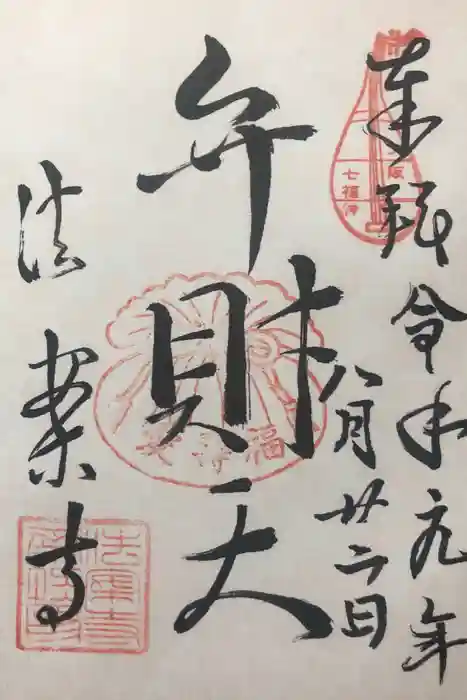 奉拝
令和元年
八月廿二日
七福神
弁財天
福寿
法案寺